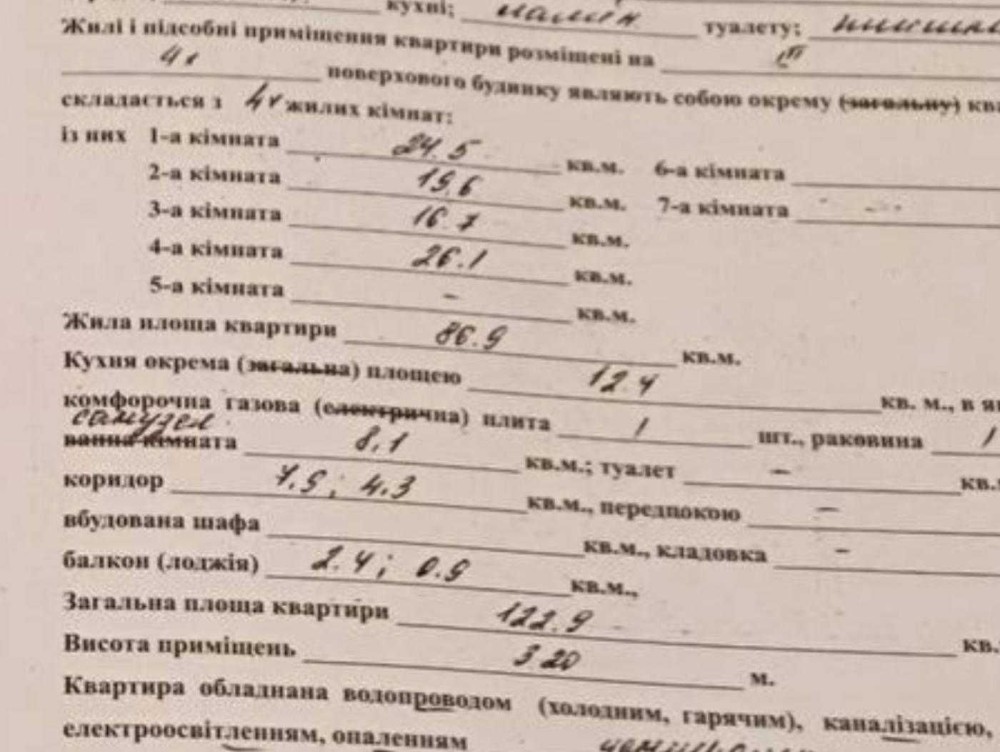 кухні; ламін туалету;
Жилі і підсобні приміщення квартири розміщені на III
4х поверхового будинку являють собою окрему (загальну) ква
складається з 4х жилих кімнат:
із них 1-а кімната 24.5 кв.м. 6-а кімната
2-а кімната 19.6 кв.м. 7-а кімната -
3-а кімната 16.7 кв.м.
4-а кімната 26.1 кв.м.
5-а кімната - кв.м.
Жила площа квартири 86.9 кв.м.
Кухня окрема (загальна) площею 12.4 кв. м., в як
комфорочна газова (електрична) плита 1 шт., раковина 1
санузел
ванна кімната 8.1 кв.м.; туалет - кв.
коридор 7.9; 4.3 кв.м., передпокою -
вбудована шафа кв.м., кладовка -
балкон (лоджія) 2.4; 0.9 кв.м.,
Загальна площа квартири 122.9 кв.
Висота приміщень 3 20 м.
Квартира обладнана водопроводом (холодним, гарячим), каналізацією,
електроосвітленням, опаленням